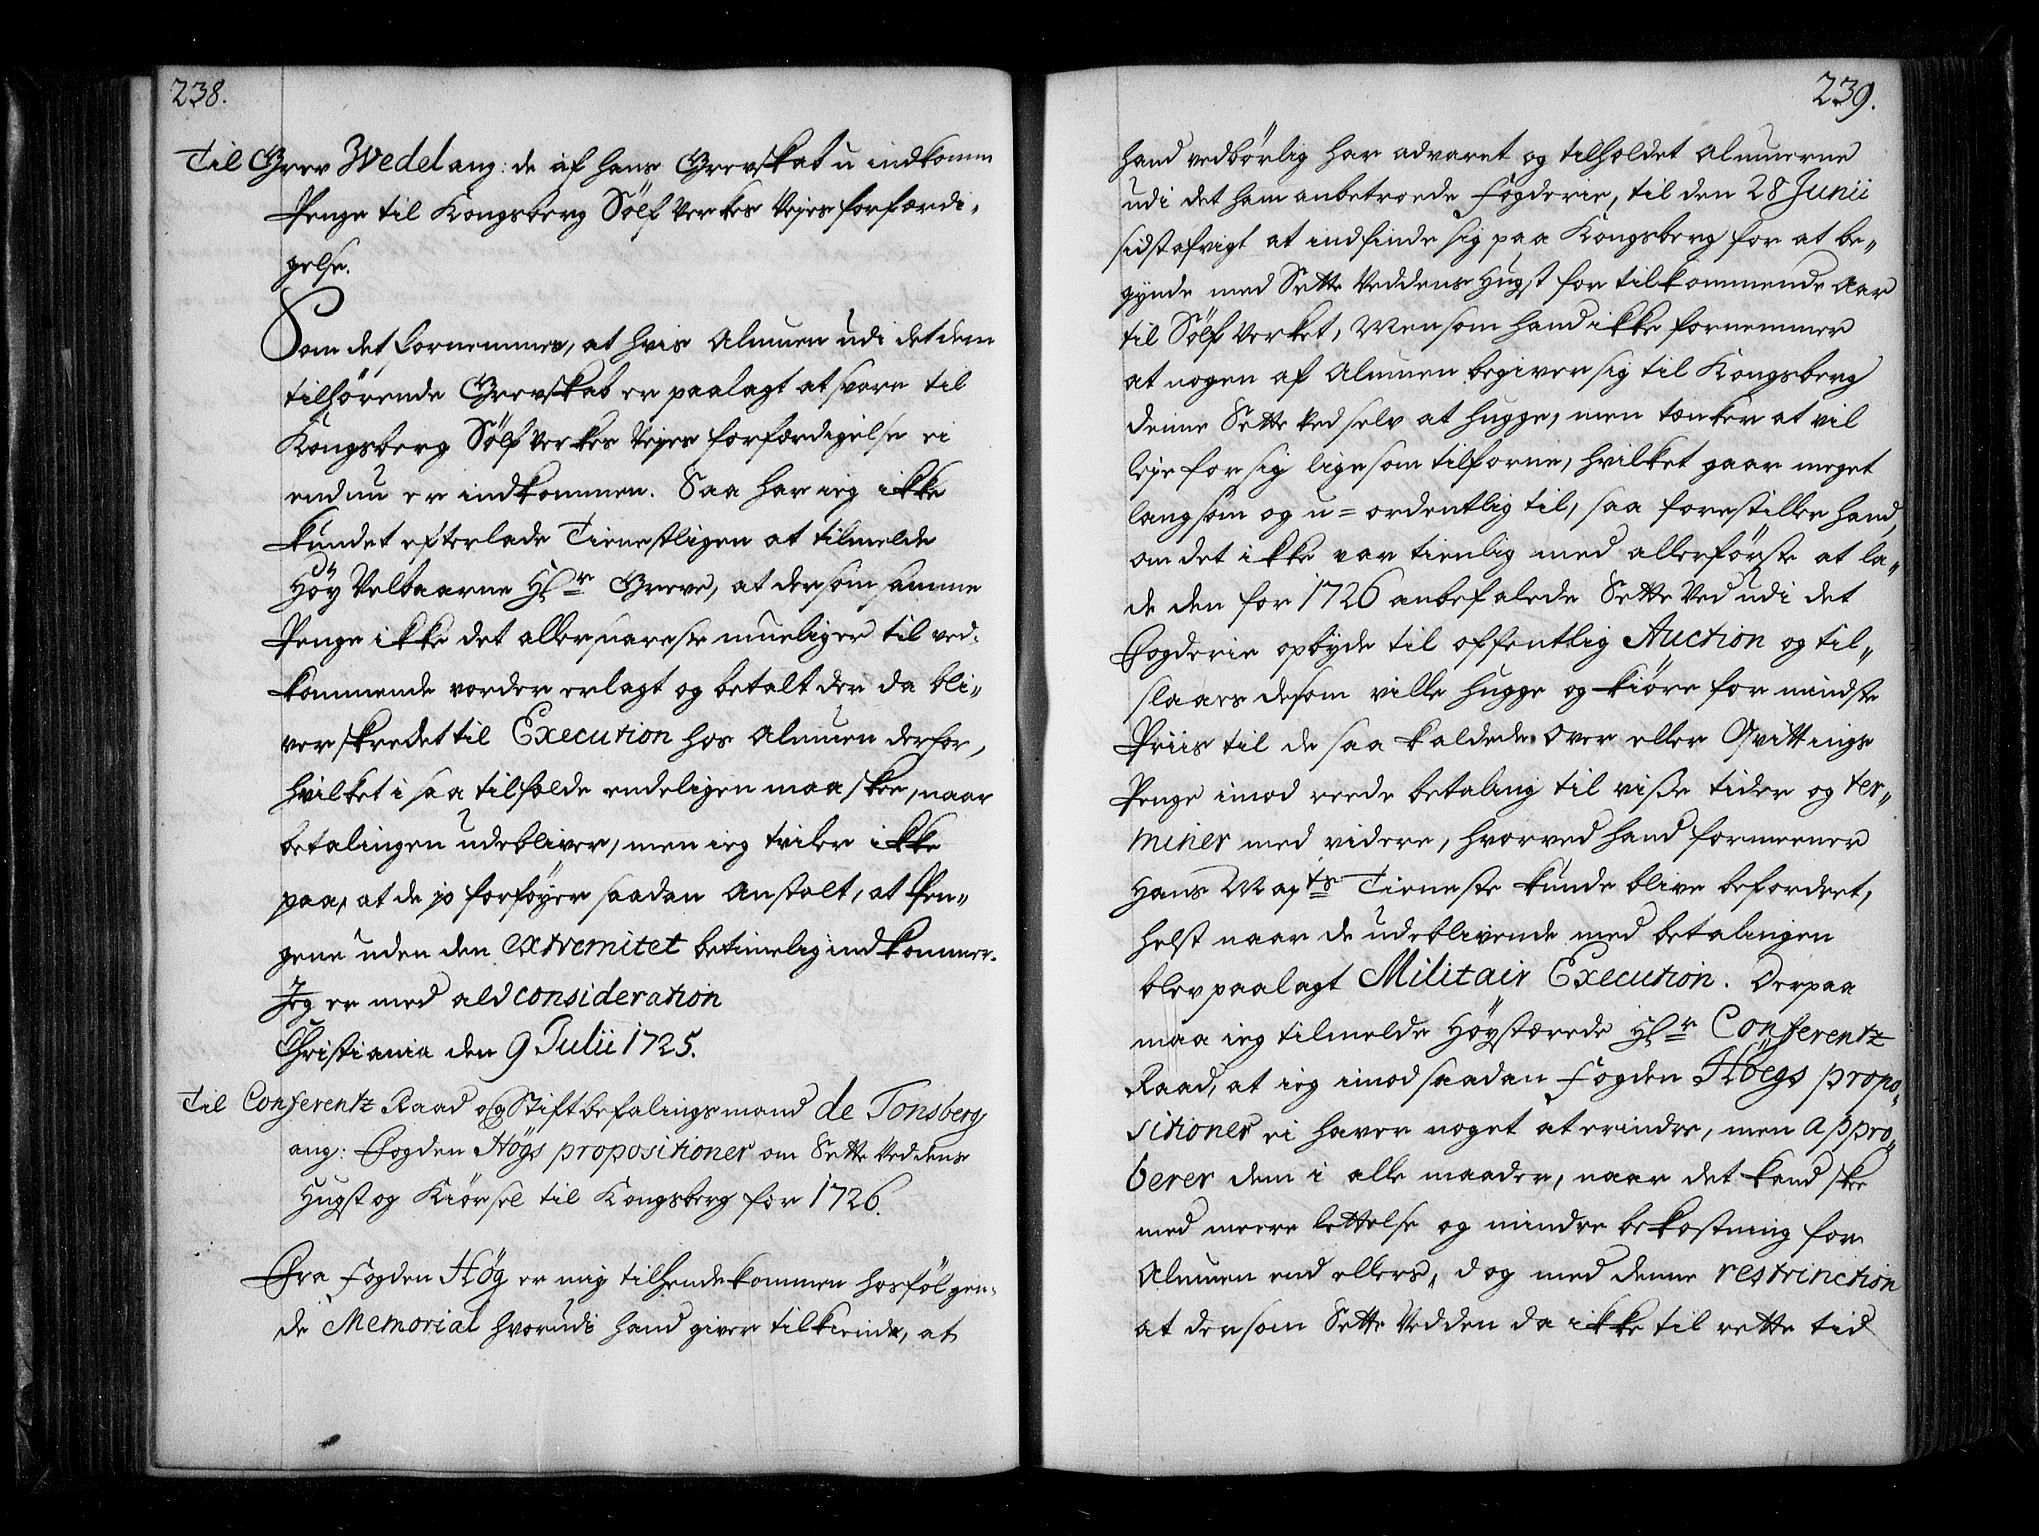 238.
Til Grev Wedel ang: de af hans Grevskab u indkomm
Penge til Kongsberg Sölf Verkes Vejes forfærdi-
gelse.
Som det fornemmes, at hvis Almuen udi det dem
tilhörende Grevskab er paalagt at svare til
Kongsberg Sölf Verkes Vejes forfærdigelse ei
endnu er indkommen. Saa har ieg ikke
kundet efterlade Tienestligen at tilmelde
Höy Velbaarne Hr Greve, at dersom samme
Penge ikke det allersnareste mueligen til ved-
kommende vorder erlagt og betalt der da bli-
ver skredet til Execution hos Almuen derfor,
hvilket i saa tilfælde endeligen maa skee, naar
betalingen udebliver, men ieg tviler ikke
paa, at de jo forföyer saadan Anstalt, at Pen-
gene uden den extremitet betimelig indkommer.
Jeg er med ald consideration
Christiania den 9 Julii 1725.
Til Conferentz Raad og Stiftbefalingsmand de Tonsberg
ang: Fogden Högs propositioner om Sette Veddens
Hugst og Kiörsel til Kongsberg for 1726.
Fra Fogden Hög er mig tilhende kommen hosfölgen-
de Memorial hvorudi hand giver tilkiende, at
239.
hand vedbörlig har advaret og tilholdet Almuerne
udi det ham anbetroede Fogderie, til den 28 Junii
sidstafvigt at indfinde sig paa Kongsberg for at be-
gynde med Sette Veddens Hugst for tilkommende Aar
til Sölf Verket, Men som hand ikke fornemmer
at nogen af Almuen begiver sig til Kongsberg
denne Sette Ved selv at hugge, men tænker at vil
leje for sig ligesom tilforne, hvilket gaar meget
langsom og u-ordentlig til, saa forestiller hand,
om det ikke var tienlig med allerförste at la-
de den for 1726 anbefalede Sette Ved udi det
Fogderie opbyde til offentlig Auction og til-
slaaes de som ville hugge og kiöre for mindste
Priis til de saa kaldede Over eller Qvittings
Penge imod reede betaling til visse tider og ter-
miner med videre, hvorved hand formeener
Hans Mayts Tieneste kunde blive befordret,
helst naar de udeblivende med betalingen
blev paalagt Militair Execution. Derpaa
maa ieg tilmelde Höystærede Hr Conferentz
Raad, at ieg imod saadan Fogden Höegs propo-
sitioner ei haver noget at erindre, men appro-
berer dem i alle maader, naar det kand skee
med meere lettelse og mindre bekostning for
Almuen end ellers, dog med denne restrinction
at dersom Sette Vedden da ikke til rette tid